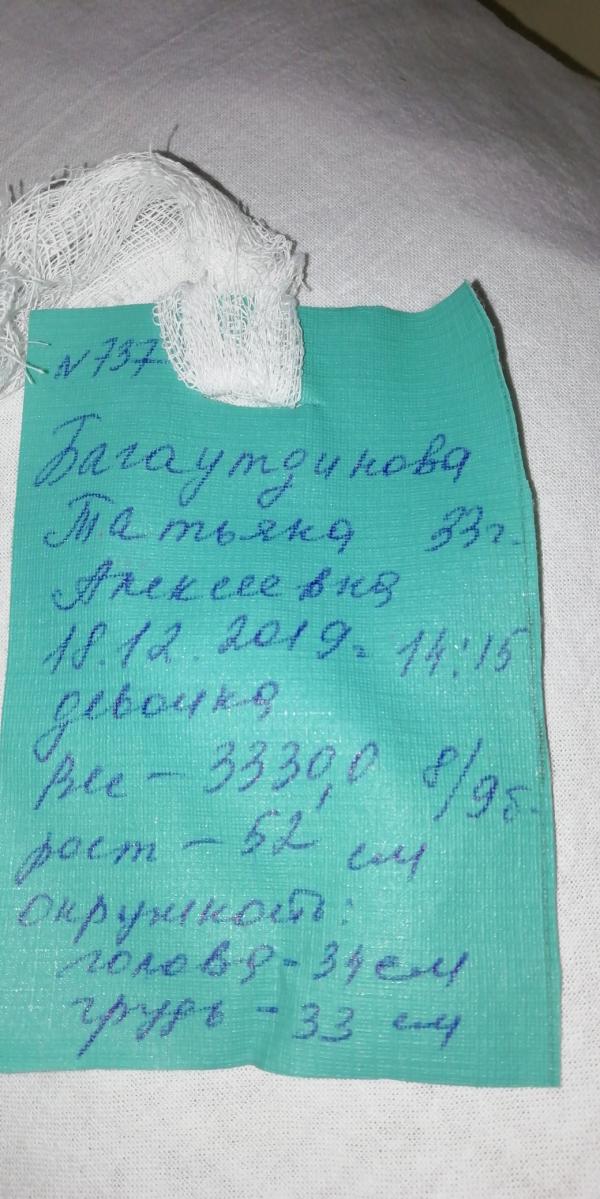 N 737
Багаутдинова
Татьяна 33г.
Алексеевна
18.12.2019г. 14:15
девочка
Вес - 3330,0 8/9б.
рост - 52 см
окружность:
голова - 34 см
грудь - 33 см